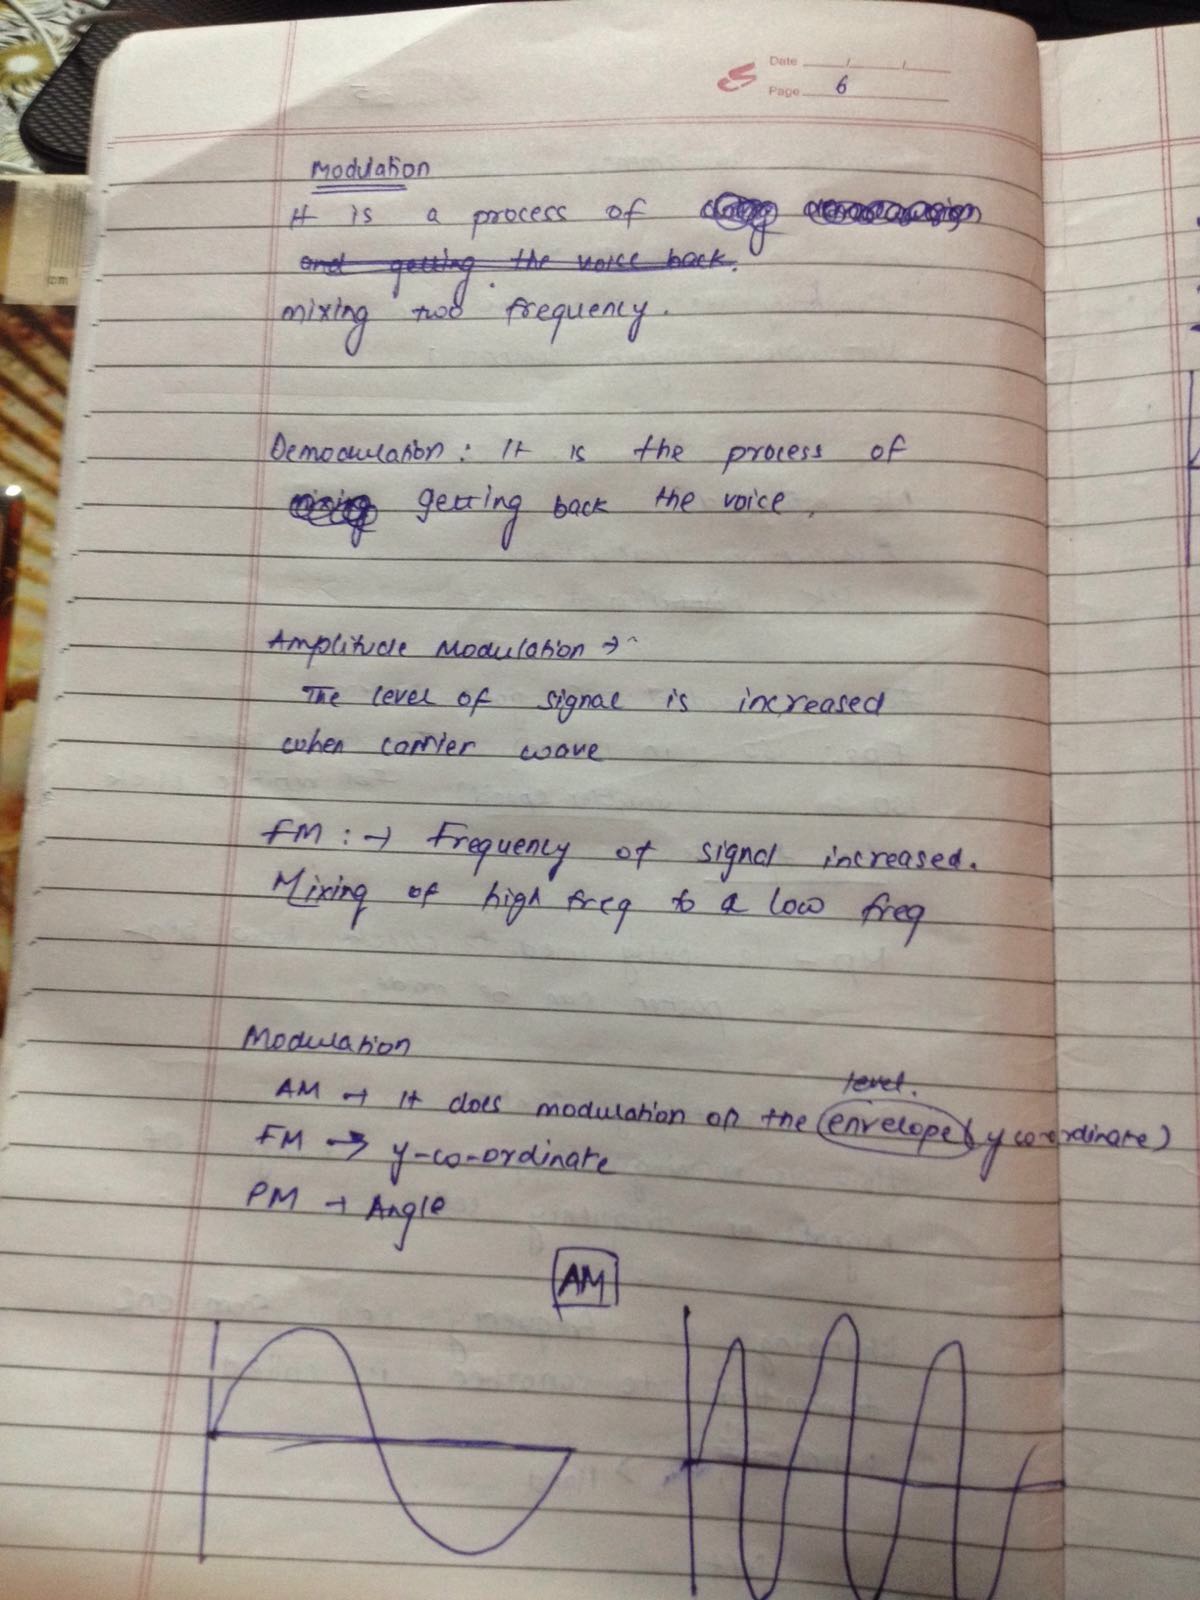 Date
Page 6
Modulation
It is a process of
and getting the voice back.
mixing two frequency.
Demodulation : It is the process of
getting back the voice.
Amplitude Modulation →
The level of signal is increased
when carrier wave
FM : → Frequency of signal increased.
Mixing of high freq to a low freq
Modulation
level.
AM → It does modulation on the envelope (y co-ordinate)
FM → y-co-ordinate
PM → Angle
AM